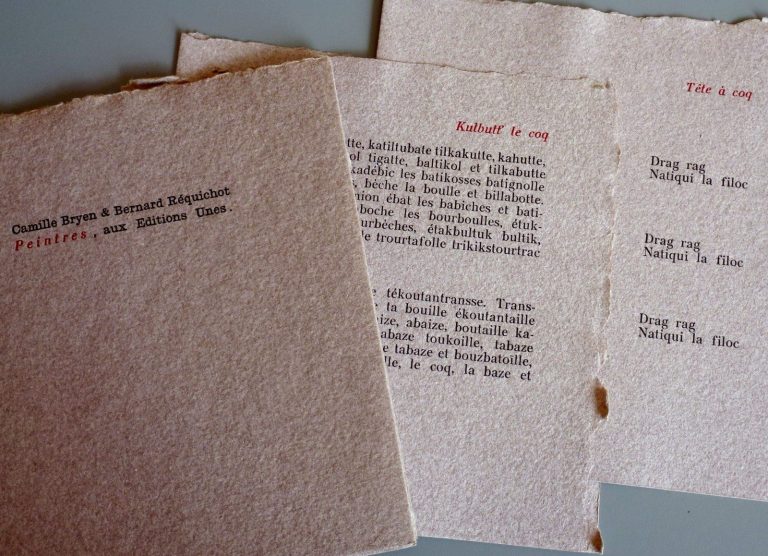 Camille Bryen & Bernard Réquichot
Peintres, aux Editions Unes.
Kulbutt' le coq
tte, katiltubate tilkakutte, kahutte,
ol tigatte, baltikol et tilkabutte
kadébic les batikosses batignolle
s, bèche la boulle et billabotte.
nion ébat les babiches et bati-
boche les bourboulles, étuk-
urbèches, étakbultuk bultik,
le trourtafolle trikikstourtrac
e tékoutantransse. Trans-
e ta bouille ékoutantaille
ize, abaize, boutaille ka-
abaze toukoille, tabaze
e tabaze et bouzbatoille,
lle, le coq, la baze et
Tête à coq
Drag rag
Natiqui la filoc
Drag rag
Natiqui la filoc
Drag rag
Natiqui la filoc